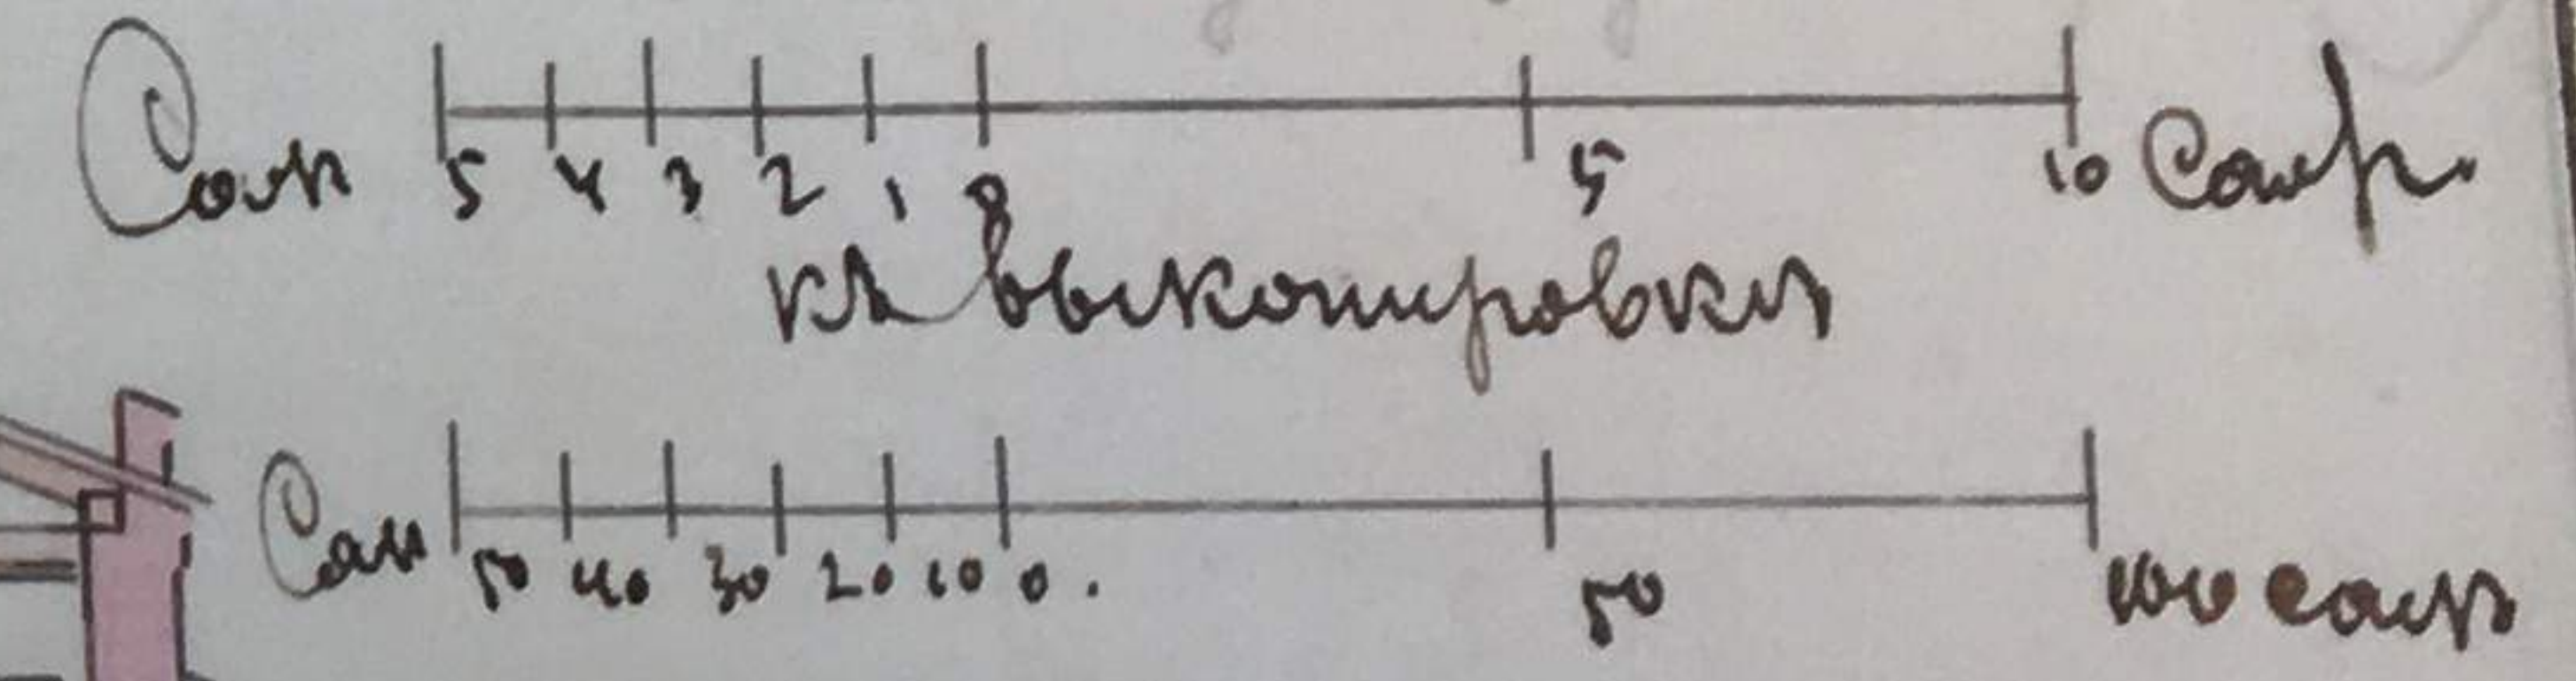 Саж 5 4 3 2 1 0 5 10 Саж.
къ выкопировкѣ
Саж 50 40 30 20 10 0. 50 100 саж